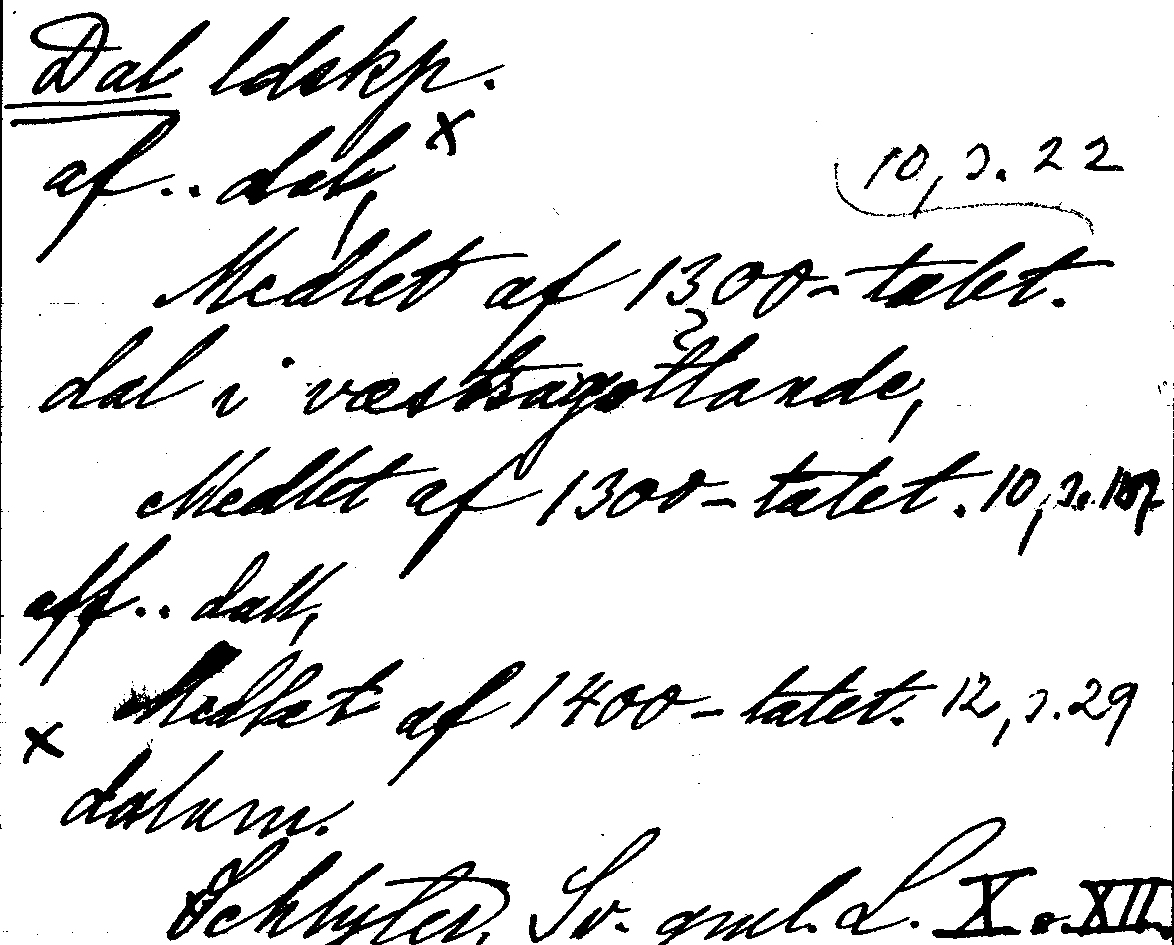 Dal ldskp.
af.. dal, x
10, s. 22
Medlet af 1300-talet.
dal i væstragøtlande,
Medlet af 1300-talet. 10, s. 107
aff.. dall,
Medlet af 1400-talet. 12, s. 29
x
dalum.
Schlyter, Sv. gml. L. X o. XII.